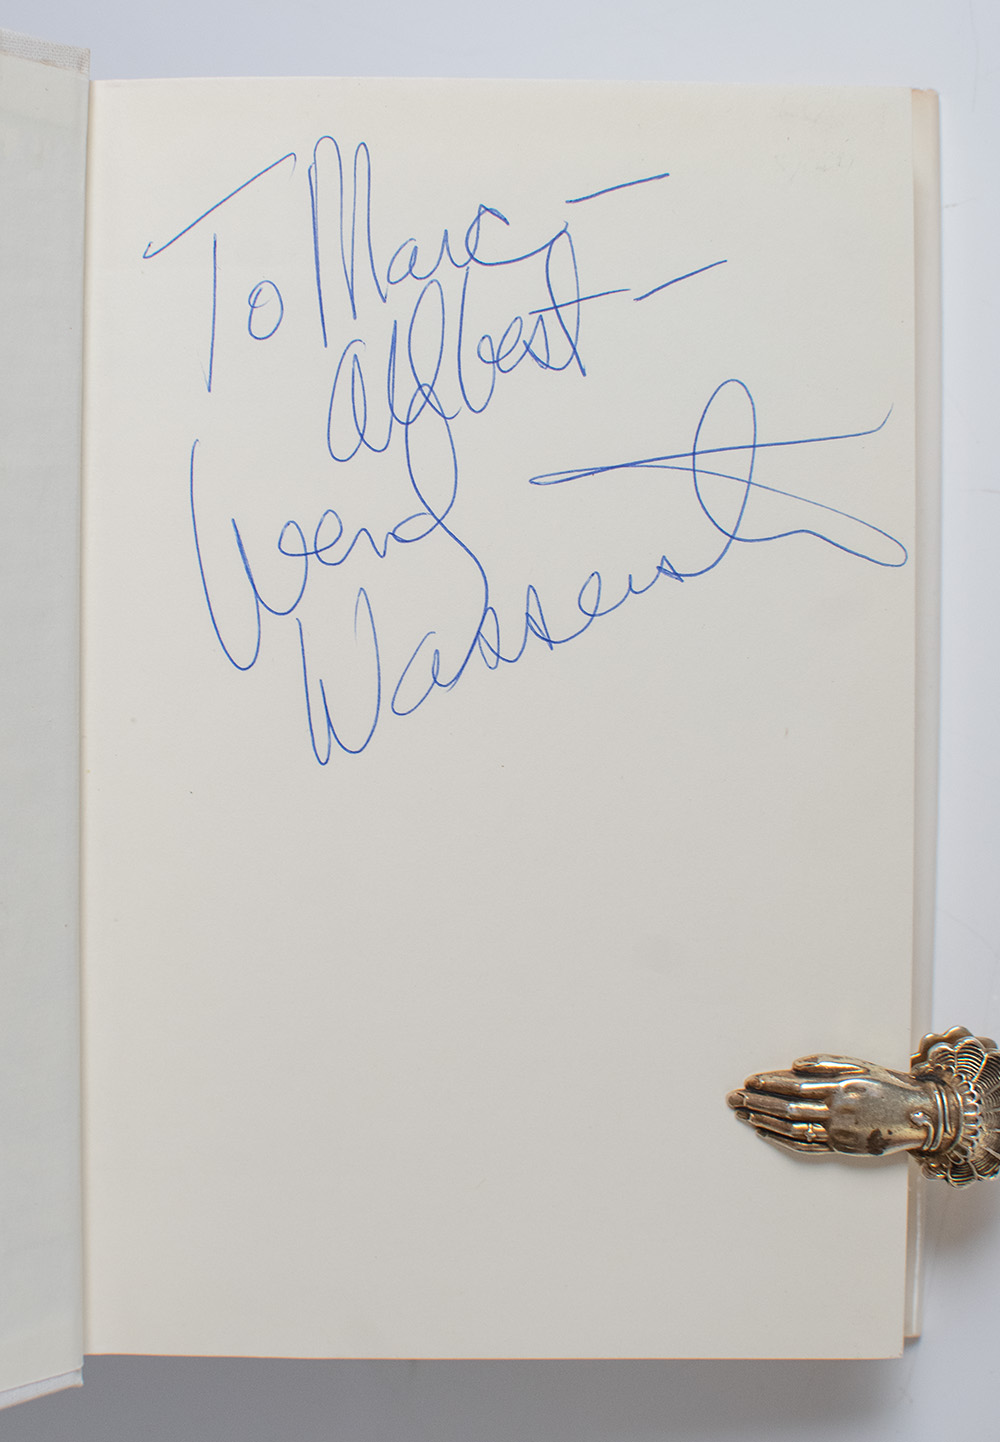 To Marc —
All best —
Wendy
Wasserstein